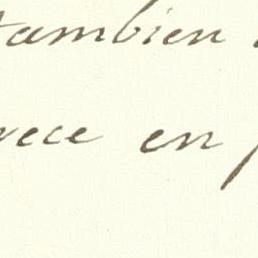 tambien
vece en